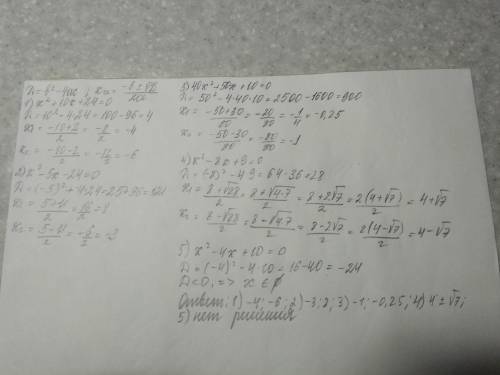 D=b²-4ac; x₁,₂=(-b±√D)/2a
1) x²+10x+24=0
D=10²-4·24=100-96=4
x₁=(-10+2)/2=-8/2=-4
x₂=(-10-2)/2=-12/2=-6
2) x²-5x-24=0
D=(-5)²+4·24=25+96=121
x₁=(5+11)/2=16/2=8
x₂=(5-11)/2=-6/2=-3
3) 40x²+50x+10=0
D=50²-4·40·10=2500-1600=900
x₁=(-50+30)/80=-20/80=-1/4=-0,25
x₂=(-50-30)/80=-80/80=-1
4) x²-8x+9=0
D=(-8)²-4·9=64-36=28
x₁=(8+√28)/2=(8+√4·7)/2=(8+2√7)/2=2(4+√7)/2=4+√7
x₂=(8-√28)/2=(8-√4·7)/2=(8-2√7)/2=2(4-√7)/2=4-√7
5) x²-4x+10=0
D=(-4)²-4·10=16-40=-24
D<0, => x∈∅
Ответ: 1) -4; -6; 2) -3; 8; 3) -1; -0,25; 4) 4±√7;
5) нет решения